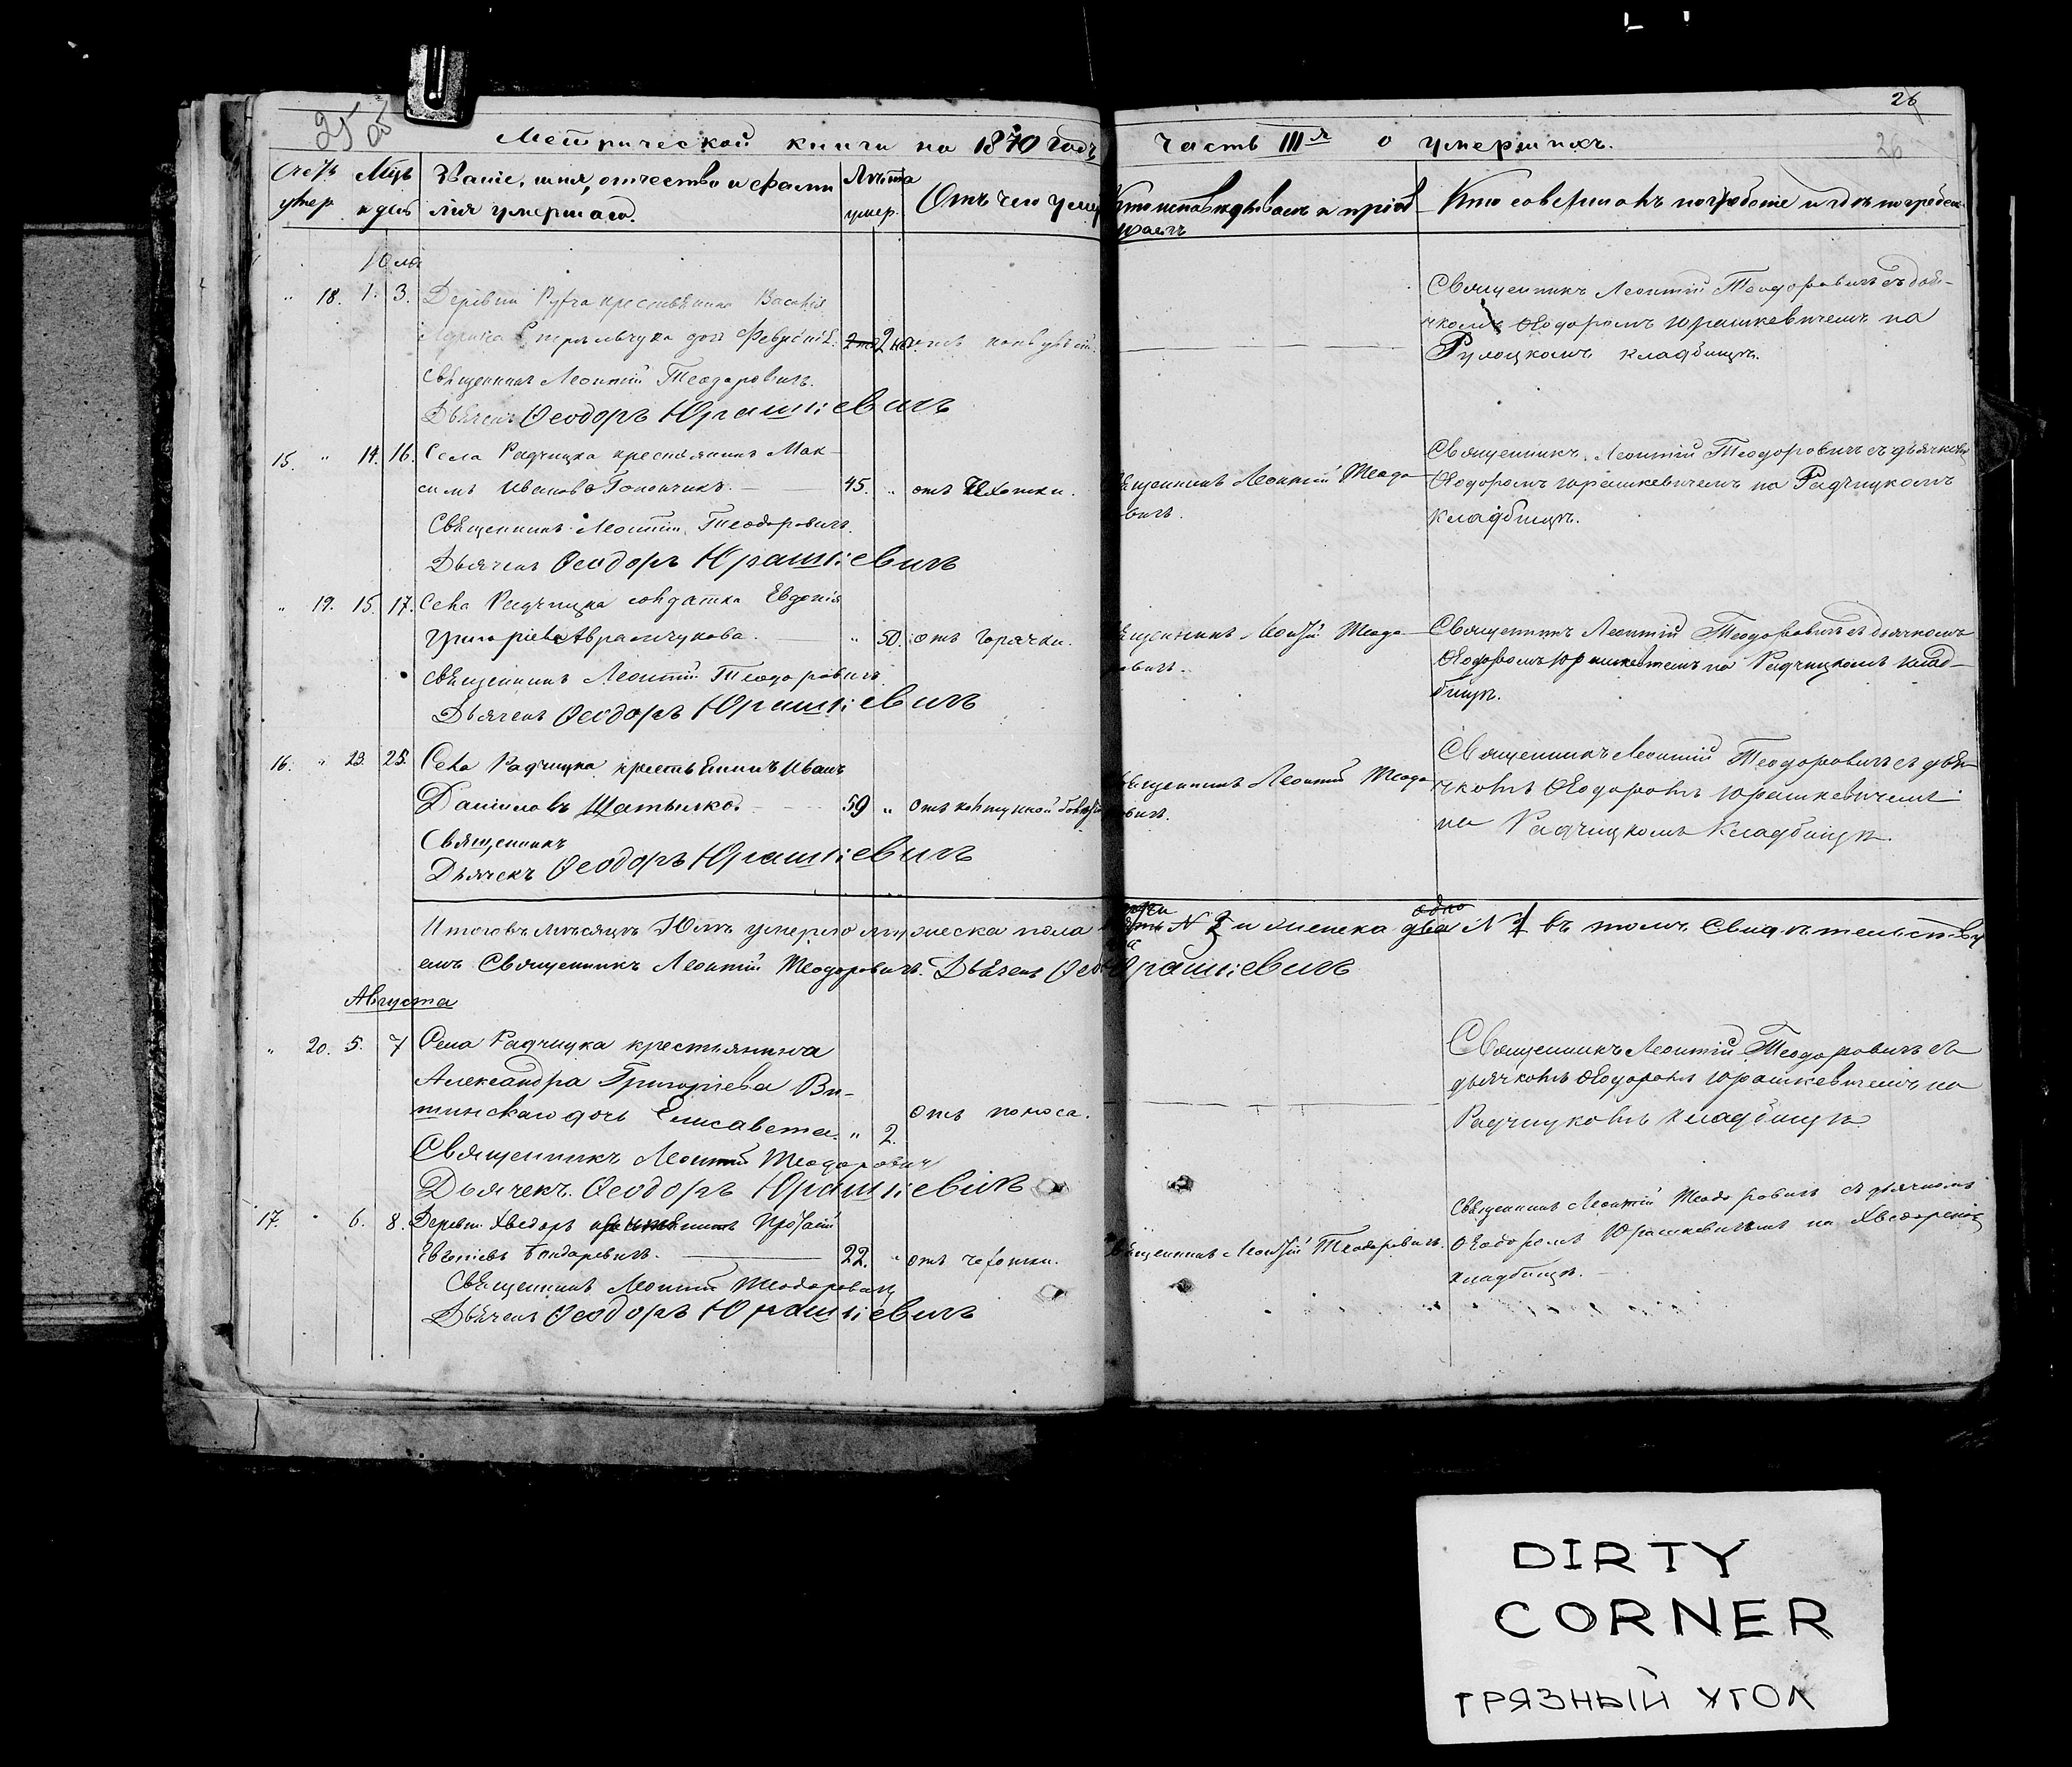 25 об
26
26
Метрической книги на 1870 годъ
Часть III я о умершихъ.
Счетъ умер.
Мцъ и день
Званіе, имя, отчество и фами
лія умершаго.
Лѣта умер.
Отъ чего умеръ
Кто исповѣдывалъ и пріоб
щалъ
Кто совершалъ погребеніе и гдѣ погребен
Юля
" 18. 1. 3. Деревни крестьянина
дочь Февронія. 2 отъ
Священникъ Леонтій Теодоровичъ.
Дьячекъ Ѳеодоръ Юрашкевичъ
Священникъ Леонтій Теодоровичъ съ дья-
чкомъ Ѳеодоромъ Юрашкевичемъ на
кладбищѣ.
15. " 14. 16. Села Радчицка крестьянинъ Мак-
симъ Ивановъ 45. " отъ Чехотки.
Священникъ Леонтій Теодоровичъ
Дьячекъ Ѳеодоръ Юрашкевичъ
священникъ Леонтій Теодо
вичъ.
Священникъ Леонтій Теодоровичъ съ дьячкомъ
Ѳеодоромъ Юрашкевичемъ на Радчицкомъ
кладбищѣ.
" 19. 15. 17. Села Радчицка солдатка Евдокія
Григоріева Абрамчукова. " 50. отъ Горячки.
священникъ Леонтій Теодоровичъ.
Дьячекъ Ѳеодоръ Юрашкевичъ
священникъ Леонтій Теодо
ровичъ.
Священникъ Леонтій Теодоровичъ съ дьячкомъ
Ѳеодоромъ Юрашкевичемъ на Радчицкомъ клад-
бищѣ.
16. " 23. 25. Села Радчицка крестьянинъ Иванъ
Даниловъ 59 " отъ
Священникъ
Дьячекъ Ѳеодоръ Юрашкевичъ
священникъ Леонтій Теодо
ровичъ.
Священникъ Леонтій Теодоровичъ съ дья
чкомъ Ѳеодоромъ Юрашкевичемъ
на Радчицкомъ Кладбищѣ.
Итого въ мѣсяцѣ Юлѣ умерло мужеска пола N и женска одно N 1 въ томъ Свидѣтельству
емъ Священникъ Леонтій Теодоровичъ. Дьячекъ Ѳео Юрашкевичъ
Августа
" 20. 5. 7 Села Радчицка крестьянина
Александра Григоріева Ви-
тинскаго дочь Елисавета. " 2. отъ поноса.
Священникъ Леонтій Теодоровичъ
Дьячекъ. Ѳеодоръ Юрашкевичъ
Священникъ Леонтій Теодоровичъ съ
дьячкомъ Ѳеодоромъ Юрашкевичемъ на
Радчицкомъ кладбищѣ
17. " 6. 8. Деревни Хведоръ крестьянинъ
Евгеніевъ Бондаревичъ. 22. " отъ чехотки.
Священникъ Леонтій Теодоровичъ
Дьячекъ Ѳеодоръ Юрашкевичъ
священникъ Леонтій Теодоровичъ.
Священникъ Леонтій Теодоровичъ съ дьячкомъ
Ѳеодоромъ Юрашкевичемъ на
кладбищѣ.
DIRTY
CORNER
ГРЯЗНЫЙ УГОЛ